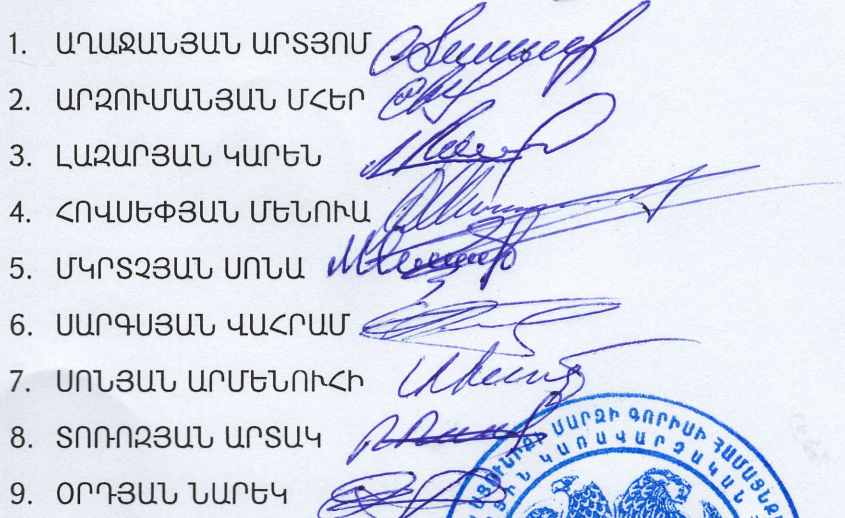 1. ԱՂԱՋԱՆՅԱՆ ԱՐՏՅՈՄ
2. ԱՐԶՈՒՄԱՆՅԱՆ ՄՀԵՐ
3. ԼԱԶԱՐՅԱՆ ԿԱՐԵՆ
4. ՀՈՎՍԵՓՅԱՆ ՄԵՆՈՒԱ
5. ՄԿՐՏՉՅԱՆ ՍՈՆԱ
6. ՍԱՐԳՍՅԱՆ ՎԱՀՐԱՄ
7. ՍՈՆՅԱՆ ԱՐՄԵՆՈՒՀԻ
8. ՏՈՌՈԶՅԱՆ ԱՐՏԱԿ
9. ՕՐԴՅԱՆ ՆԱՐԵԿ
ՍՅՈՒՆԻՔԻ ՄԱՐԶԻ ԳՈՐԻՍԻ ՀԱՄԱՅՆՔ
ԿԱՌԱՎԱՐՉԱԿԱՆ